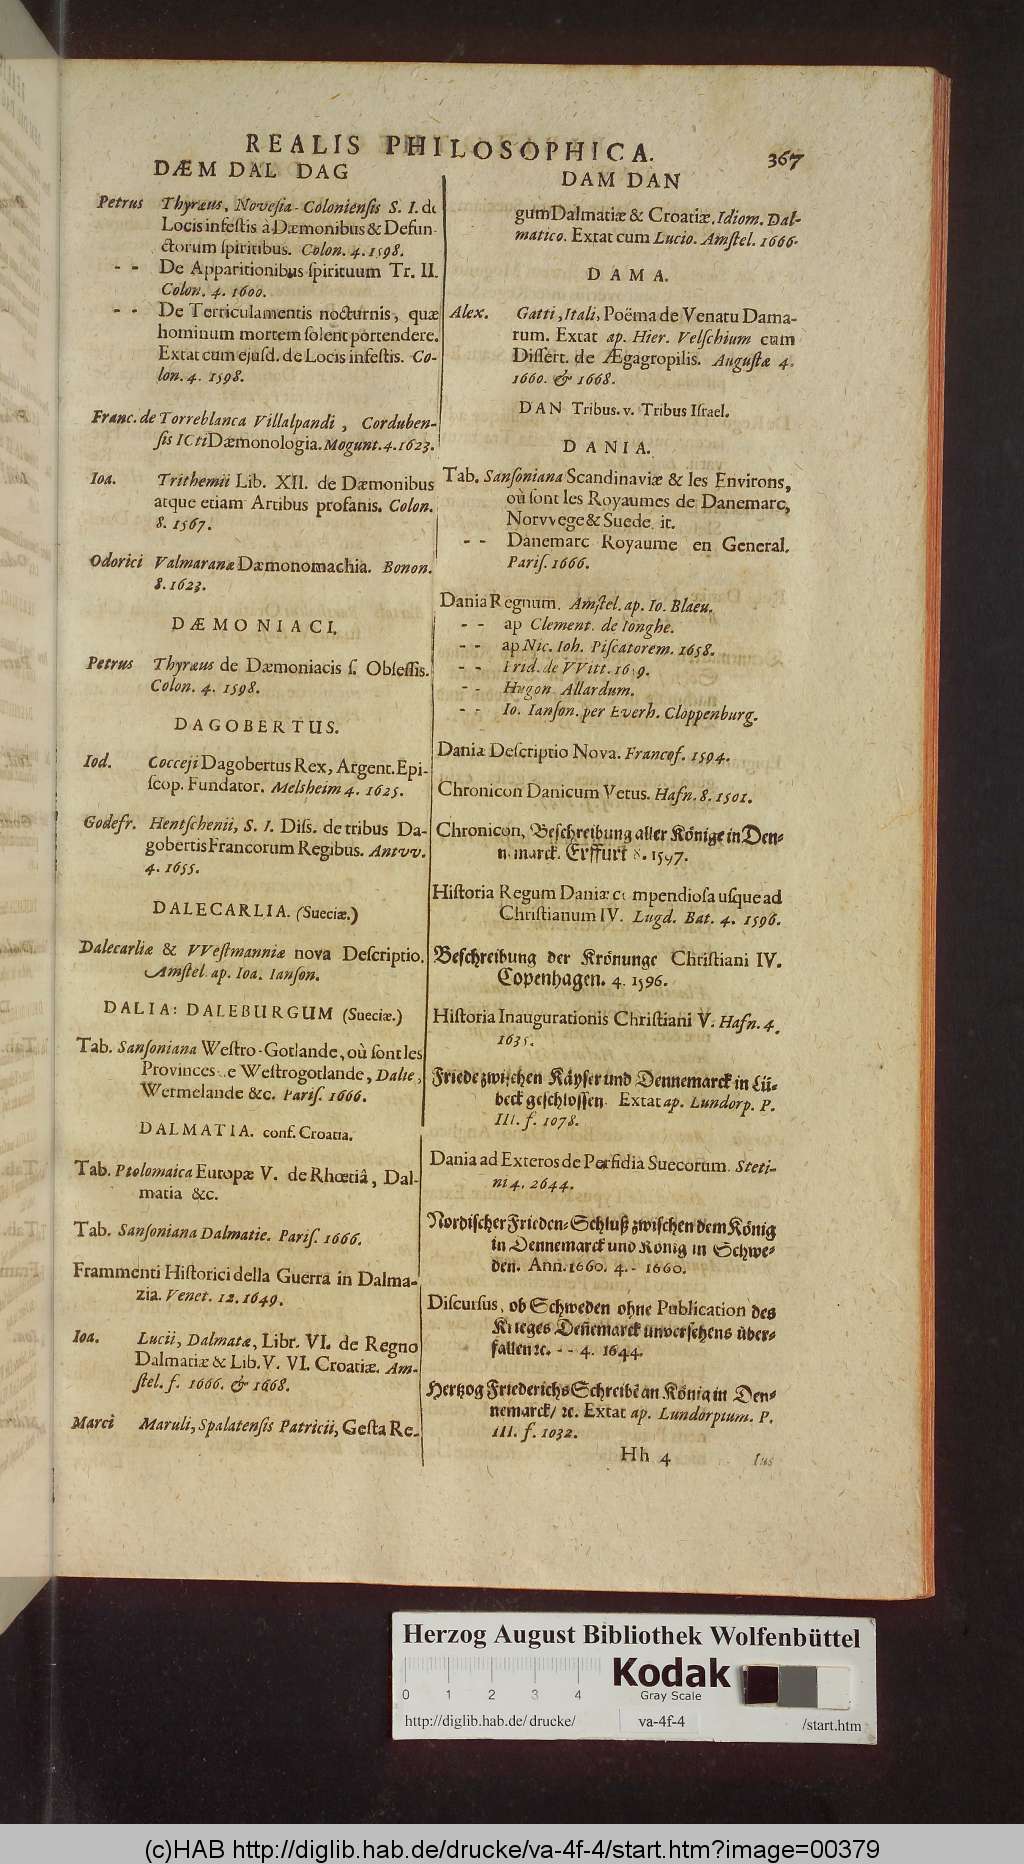 REALIS PHILOSOPHICA. 367
DÆM DAL DAG
Petrus Thyræus, Novesia-Coloniensis S. I. de
Locis infestis à Dæmonibus & Defun-
ctorum spiritibus. Colon. 4. 1598.
- - De Apparitionibus spirituum Tr. II.
Colon. 4. 1600.
- - De Terriculamentis nocturnis, quæ
hominum mortem solent portendere.
Extat cum ejusd. de Locis infestis. Co-
lon. 4. 1598.
Franc. de Torreblanca Villalpandi, Corduben-
sis ICti Dæmonologia. Mogunt. 4. 1623.
Ioa. Trithemii Lib. XII. de Dæmonibus
atque etiam Artibus profanis. Colon.
8. 1567.
Odorici Valmaranæ Dæmonomachia. Bonon.
8. 1623.
DÆMONIACI.
Petrus Thyræus de Dæmoniacis s. Obsessis.
Colon. 4. 1598.
DAGOBERTUS.
Iod. Cocceji Dagobertus Rex, Argent. Epi-
scop. Fundator. Melsheim 4. 1625.
Godefr. Hentschenii, S. I. Diss. de tribus Da-
gobertis Francorum Regibus. Antvv.
4. 1655.
DALECARLIA. (Sueciæ.)
Dalecarliæ & VVestmanniæ nova Descriptio.
Amstel. ap. Ioa. Ianson.
DALIA: DALEBURGUM (Sueciæ.)
Tab. Sansoniana Westro-Gotlande, où sont les
Provinces e Westrogotlande, Dalie,
Wermelande &c. Paris. 1666.
DALMATIA. conf. Croatia.
Tab. Ptolomaica Europæ V. de Rhœtiâ, Dal-
matia &c.
Tab. Sansoniana Dalmatie. Paris. 1666.
Frammenti Historici della Guerra in Dalma-
zia. Venet. 12. 1649.
Ioa. Lucii, Dalmatæ, Libr. VI. de Regno
Dalmatiæ & Lib. V. VI. Croatiæ. Am-
stel. f. 1666. & 1668.
Marci Maruli, Spalatensis Patricii, Gesta Re-
DAM DAN
gum Dalmatiæ & Croatiæ. Idiom. Dal-
matico. Extat cum Lucio. Amstel. 1666.
DAMA.
Alex. Gatti, Itali, Poëma de Venatu Dama-
rum. Extat ap. Hier. Velschium cum
Dissert. de Ægagropilis. Augustæ 4.
1660. & 1668.
DAN Tribus. v. Tribus Israel.
DANIA.
Tab. Sansoniana Scandinaviæ & les Environs,
où sont les Royaumes de Danemarc,
Norvvege & Suede. it.
- - Danemarc Royaume en General.
Paris. 1666.
Dania Regnum. Amstel. ap. Io. Blaeu.
- - ap Clement. de Ionghe.
- - ap Nic. Ioh. Piscatorem. 1658.
- - Frid. de VVitt.
- - Hugon Allardum.
- - Io. Ianson. per Everh. Cloppenburg.
Daniæ Descriptio Nova. Francof. 1594.
Chronicon Danicum Vetus. Hafn. 8. 1501.
Chronicon, Beschreibung aller Könige in Den-
nemarck. Erffurt 8. 1597.
Historia Regum Daniæ compendiosa usque ad
Christianum IV. Lugd. Bat. 4. 1596.
Beschreibung der Krönunge Christiani IV.
Copenhagen. 4. 1596.
Historia Inaugurationis Christiani V. Hafn. 4.
1635.
Friede zwischen Käyser und Dennemarck in Lü-
beck geschlossen. Extat ap. Lundorp. P.
III. f. 1078.
Dania ad Exteros de Perfidia Suecorum. Steti-
ni 4. 2644.
Nordischer Frieden-Schluß zwischen dem König
in Dennemarck und König in Schwe-
den. Ann. 1660. 4. - 1660.
Discursus, ob Schweden ohne Publication des
Krieges Deñemarck unversehens über-
fallen ꝛc. - - 4. 1644.
Hertzog Friederichs Schreibẽ an König in Den-
nemarck/ ꝛc. Extat ap. Lundorpium. P.
III. f. 1032.
Hh 4 Ius
Herzog August Bibliothek Wolfenbüttel
Kodak
Gray Scale
0 1 2 3 4
http://diglib.hab.de/drucke/ va-4f-4 /start.htm
(c)HAB http://diglib.hab.de/drucke/va-4f-4/start.htm?image=00379